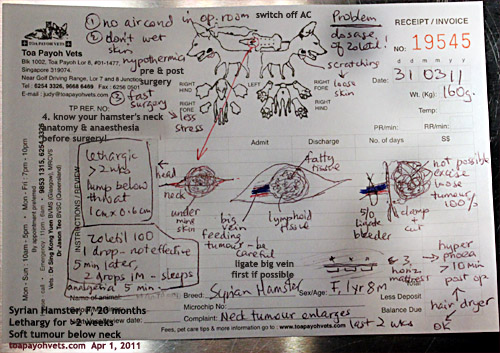 ① no aircond in op. room
switch off AC
Problem
② don't wet skin
dosage of Zoletil!
RECEIPT / INVOICE
NO: 19545
TOA PAYOH VETS
Toa Payoh Vets
Blk 1002, Toa Payoh Lor 8, #01-1477,
Singapore 319074.
Near Golf Driving Range, Lor 7 and 8 Junction
Tel: 6254 3326, 9668 6469 Fax: 6256 0501
E-mail: judy@toapayohvets.com
hypothermia
pre & post
surgery
scratching
loose skin
Date: 31 03 11
d d m m y y
Wt. (Kg) 160g.
Temp:
③ fast surgery
less stress
RIGHT HIND
RIGHT FORE
LEFT
RIGHT
RIGHT FORE
RIGHT HIND
TP REF. NO:
4. know your hamster's neck
anatomy & anaesthesia
before surgery!
PR/min:
RR/min:
Admit
Discharge
No. of days
S$
Mon - Fri: 7pm - 10pm
Mon - Sun: 10am - 5pm
By appointment preferred.
Emergency - call
9853 1315, 6254 3326
Vets: Dr Sing Kong Yuen BVMS (Glasgow), MRCVS
Dr Jason Teo BVSC (Queensland)
INSTRUCTIONS / REVIEW
Lethargic
> 2 wks
lump below
throat
1cm x 0.6cm
head
neck
under mine skin
fatty tissue
big vein feeding tumour - be careful
lymphoid tissue
not possible excise loose tumour 100%
5/0 ligate bleeder
clamp
cut
Zoletil 100
1 drop - not effective
5 min later,
2 drops im - sleeps
analgesia 5 min
ligate big vein
first if possible
& 3 horz mattress
hyper phoea
> 10 min post op
hair dryer
OK
Name of animal:
Breed: Syrian Hamster
Sex/Age: F, 1yr 8m
Less Deposit
Microchip No:
Balance Due
Complaint: Neck tumour enlarges last 2 wks
Syrian Hamster, F, 20 months
Lethargy for >2 weeks
Soft tumour below neck
Fees, pet care tips & more information go to: www.toapayohvets.com
toapayohvets.com Apr 1, 2011